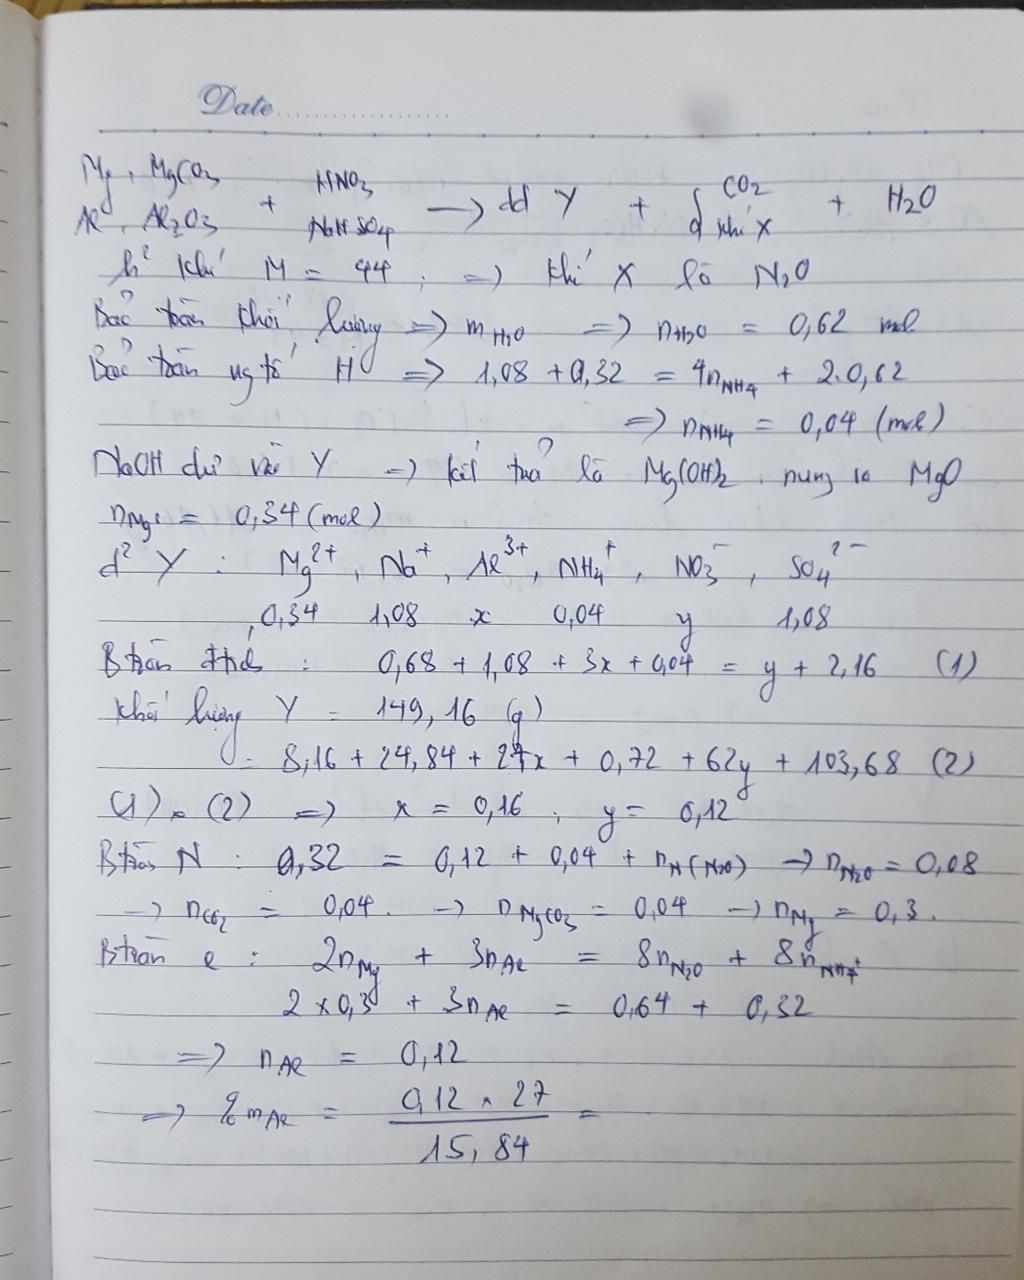 Date
Mg, MgCO3 HNO3 CO2
+ → dd Y + + H2O
Al, Al2O3 NaHSO4 khí X
h² khí M = 44 ; => khí X là N2O
Bảo toàn khối lượng => m H2O => nH2O = 0,62 mol
Bảo toàn ng tố H => 1,08 + 0,32 = 4nNH4 + 2.0,62
=> nNH4 = 0,04 (mol)
NaOH dư vào Y => kết tủa là Mg(OH)2, nung ra MgO
nMgO = 0,34 (mol)
d² Y : Mg²⁺, Na⁺, Al³⁺, NH4⁺, NO3⁻, SO4²⁻
0,34 1,08 x 0,04 y 1,08
Btoàn đtích : 0,68 + 1,08 + 3x + 0,04 = y + 2,16 (1)
Khối lượng Y = 149,16 (g)
= 8,16 + 24,84 + 27x + 0,72 + 62y + 103,68 (2)
(1), (2) => x = 0,16 , y = 0,12
Btoàn N : 0,32 = 0,12 + 0,04 + nN(N2O) → nN2O = 0,08
→ nCO2 = 0,04. → nMgCO3 = 0,04 → nMg = 0,3.
Btoàn e : 2nMg + 3nAl = 8nN2O + 8nNH4⁺
2 x 0,3 + 3nAl = 0,64 + 0,32
=> nAl = 0,12
=> % mAl = 0,12 x 27 =
15,84